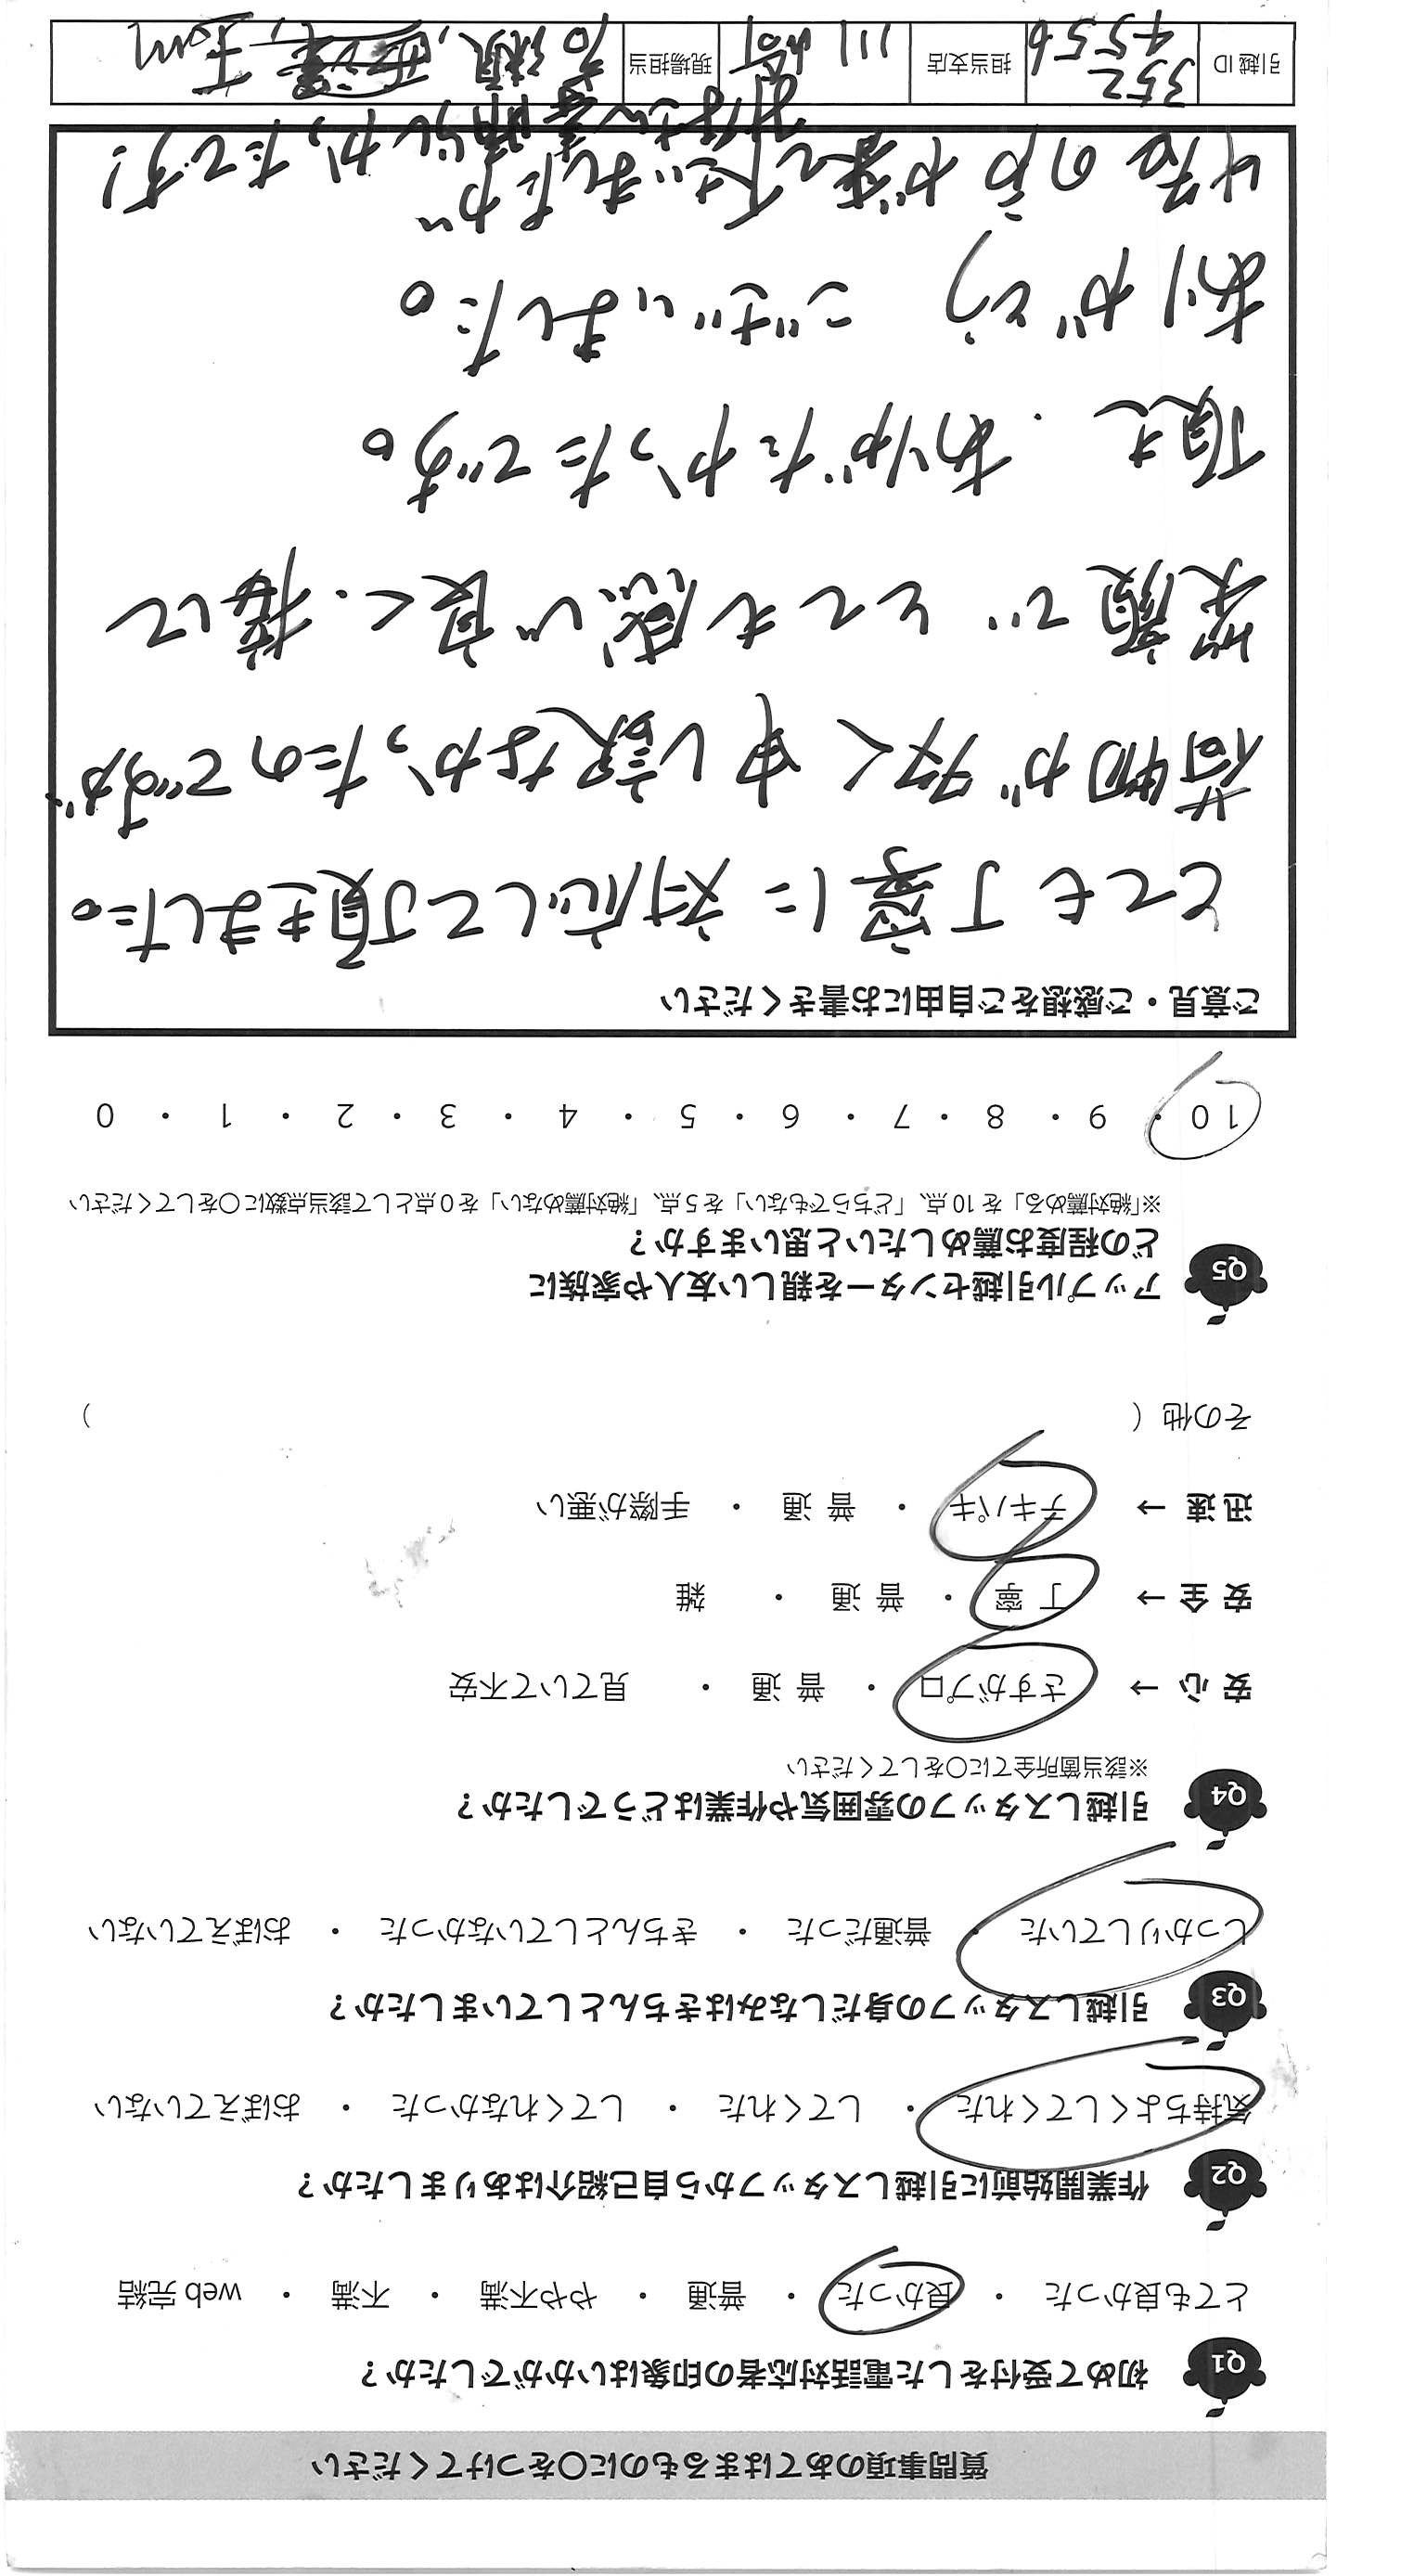 質問事項のあてはまるものに〇をつけてください
Q1 初めて受付をした電話対応者の印象はいかがでしたか？
とても良かった ・ 良かった ・ 普通 ・ やや不満 ・ 不満 ・ web 完結
Q2 作業開始前に引越しスタッフから自己紹介はありましたか？
気持ちよくしてくれた ・ してくれた ・ してくれなかった ・ おぼえていない
Q3 引越しスタッフの身だしなみはきちんとしていましたか？
しっかりしていた ・ 普通だった ・ きちんとしていなかった ・ おぼえていない
Q4 引越しスタッフの雰囲気や作業はどうでしたか？
※該当箇所全てに〇をしてください
安 心 → さすがプロ ・ 普 通 ・ 見ていて不安
安 全 → 丁 寧 ・ 普 通 ・ 雑
迅 速 → テキパキ ・ 普 通 ・ 手際が悪い
その他（ ）
Q5 アップル引越センターを親しい友人や家族に
どの程度お薦めしたいと思いますか？
※「絶対薦める」を 10 点、「どちらでもない」を 5 点、「絶対薦めない」を 0 点として該当点数に〇をしてください
10 ・ 9 ・ 8 ・ 7 ・ 6 ・ 5 ・ 4 ・ 3 ・ 2 ・ 1 ・ 0
ご意見・ご感想をご自由にお書きください
とても丁寧に対応して頂きました。
荷物が多く申し訳なかったのですが
笑顔でとても感じ良く、接して
頂き、ありがたかったです。
ありがとう ございました。
の方が来て下さいましたが
素晴らしかったです！
引越 ID 352 4556 担当支店 川崎 現場担当